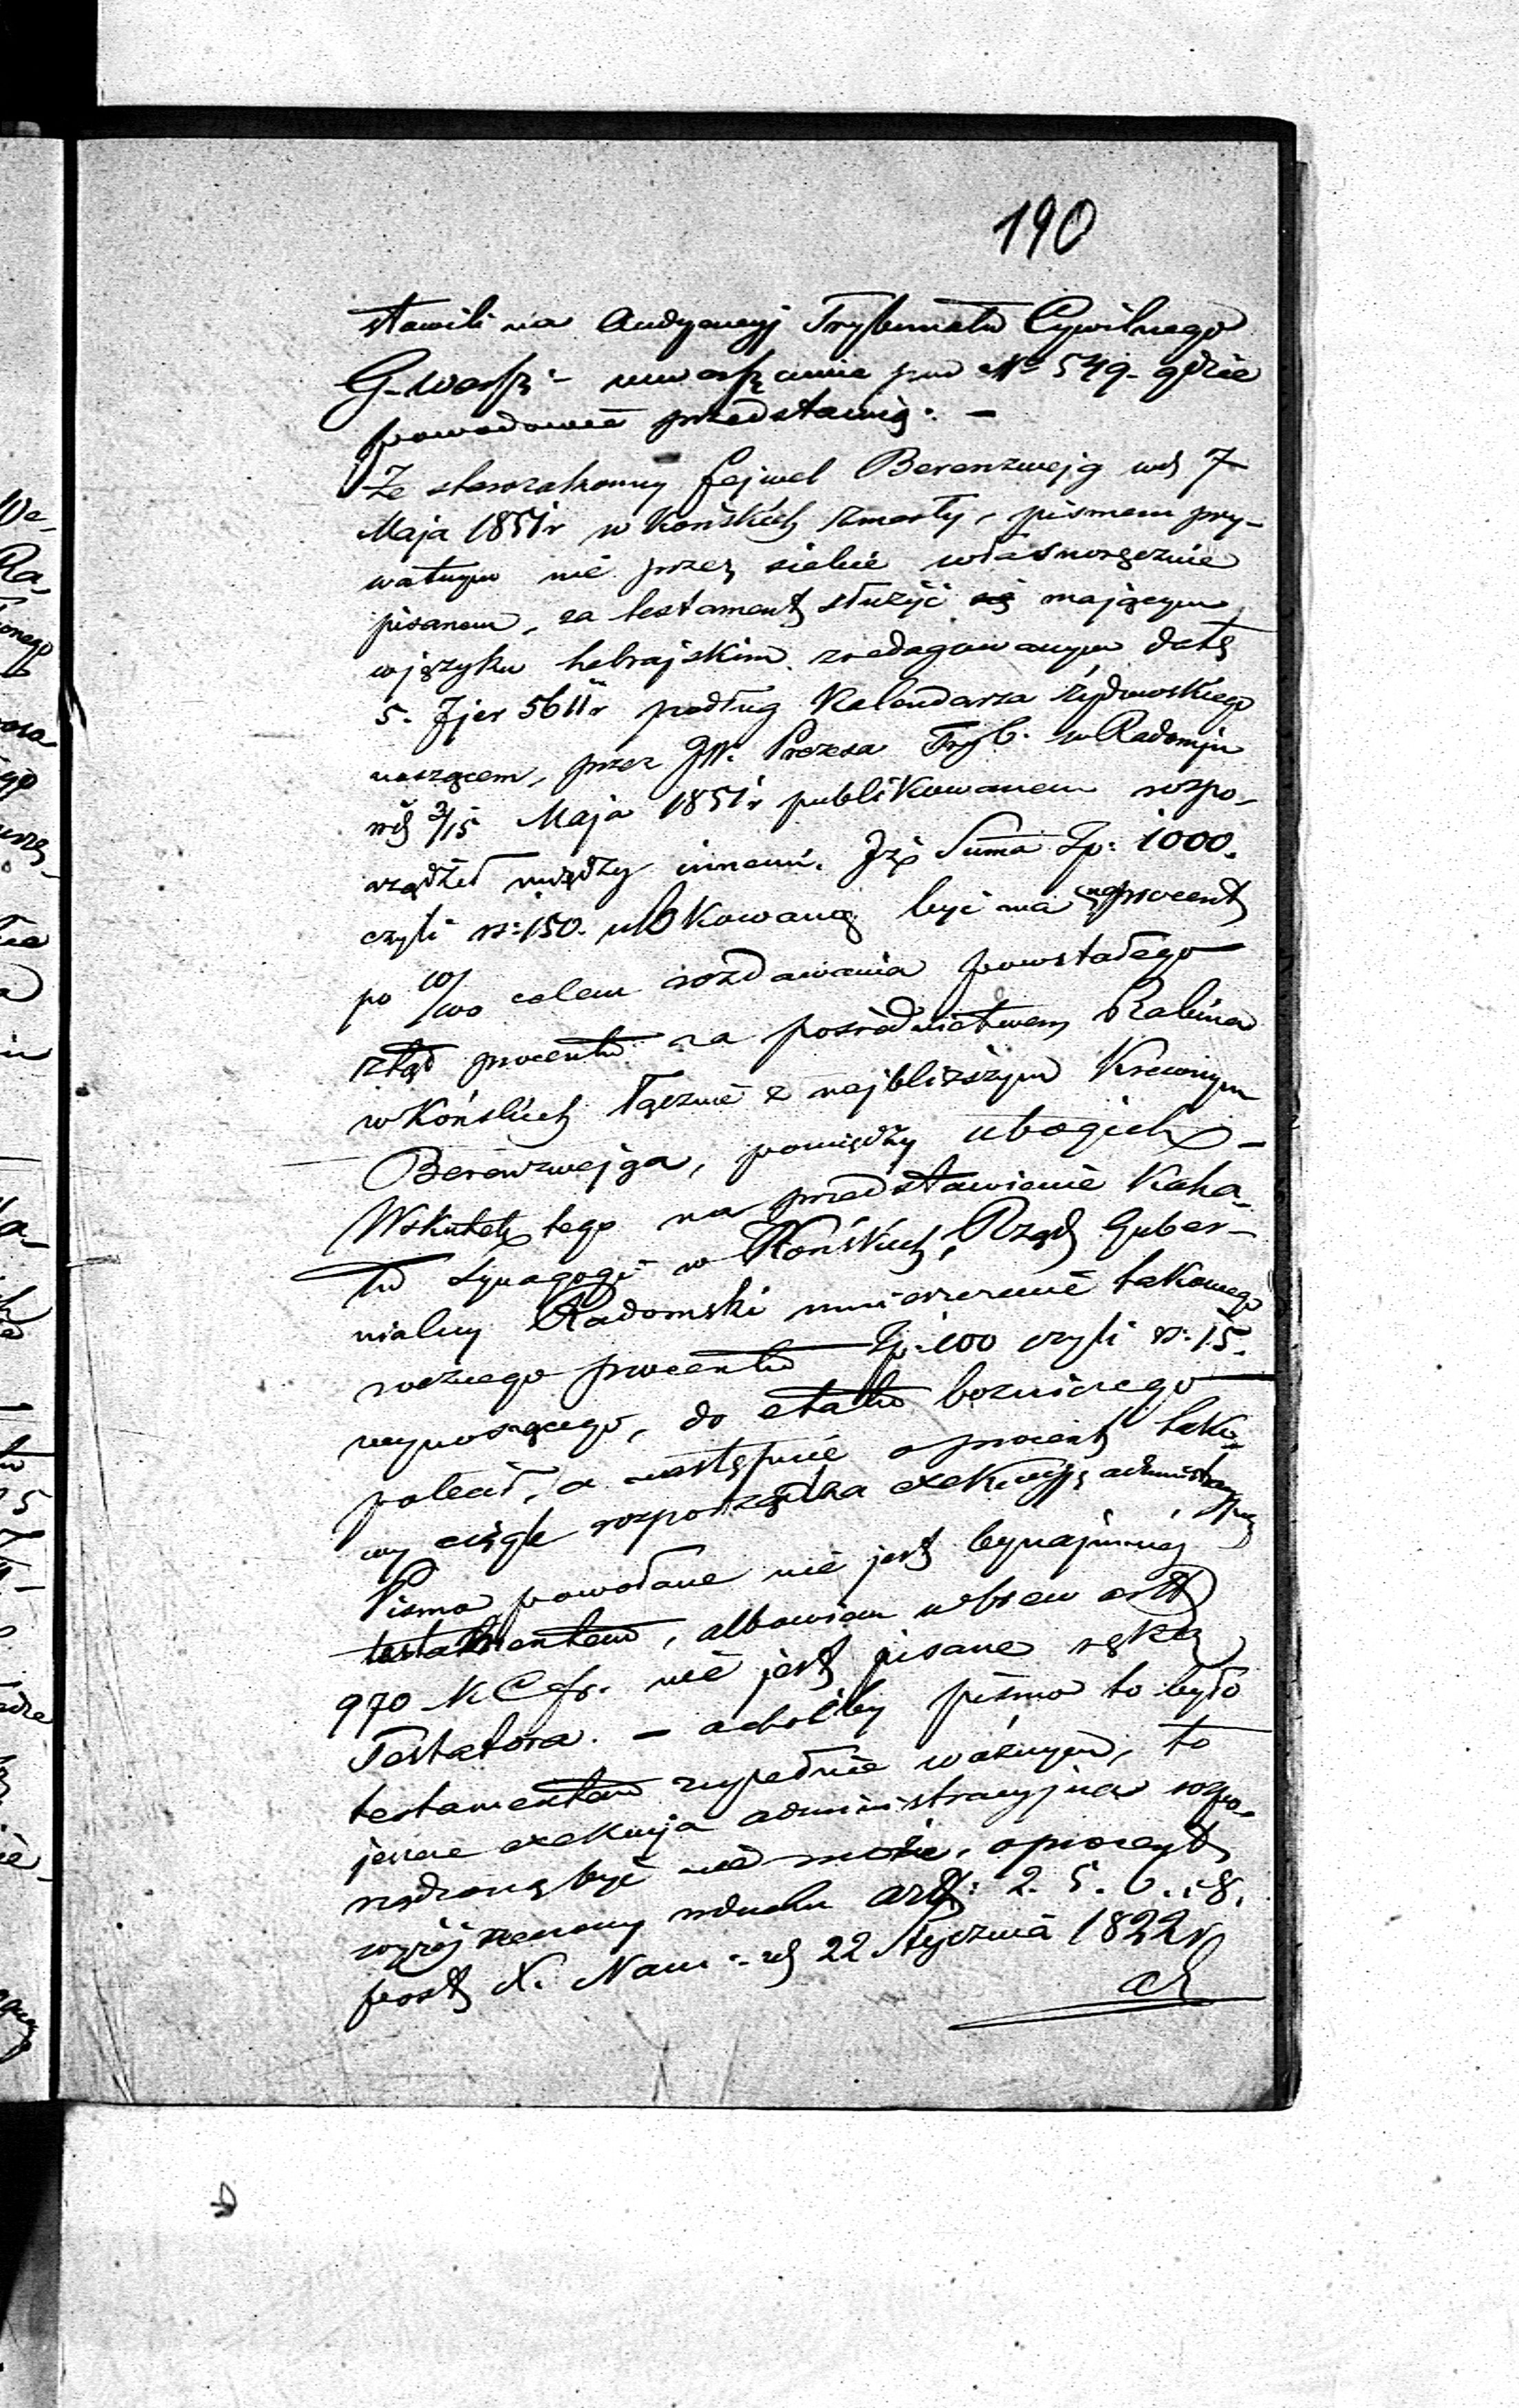 190
stawili na Audyencyj Trybunału Cywilnego
G. Warsz: w Warszawie pod No 549. gdzie
powodowie przedstawią: –
Że starozakonny Fejwel Berenzwejg w d 7
Maja 1851 r w Końskich zmarły, pismem pry-
watnym nie przez siebie własnoręcznie
pisanem, za testament służyć się mającym,
w języku hebrajskim zredagowanym datę
5. Jjer 5611 r podług Kalendarza Żydowskiego
noszącem, przez JW. Prezesa Tryb. w Radomiu
w d 3/15 Maja 1851 r publikowanem rozpo-
rządził między innemi. Iż Suma Zp: 1000.
czyli rs: 150. ulokowaną być ma na procent
po 10/100 celem rozdawania powstałego
ztąd procentu za pośrednictwem Rabina
w Końskich łącznie z najbliższym Krewnym
Berenzwejga, pomiędzy ubogich –
Wskutek tego na przedstawienie Kaha-
łu Synagogi w Końskich, Rząd Guber-
nialny Radomski umieszczenie takowego
rocznego procentu Zp: 100 czyli rs: 15.
wynoszącego, do etatu bożniczego
polecił, a następnie o procent tako-
wy ciągle rozporządza exekucyję administracyjną
Pismo powołane nie jest bynajmniéj
testamentem, albowiem wbrew art
970 K C fr. nie jest pisane ręką
Testatora. – a choćby pismo to było
testamentem zupełnie ważnym, to
jeszcze exekucja administracyjna rozpo-
rządzoną być nie może, o procent
wyżéj rzeczony w duchu art: 2. 5. 6. i 8.
post X. Nam: z d 22 Stycznia 1822 r